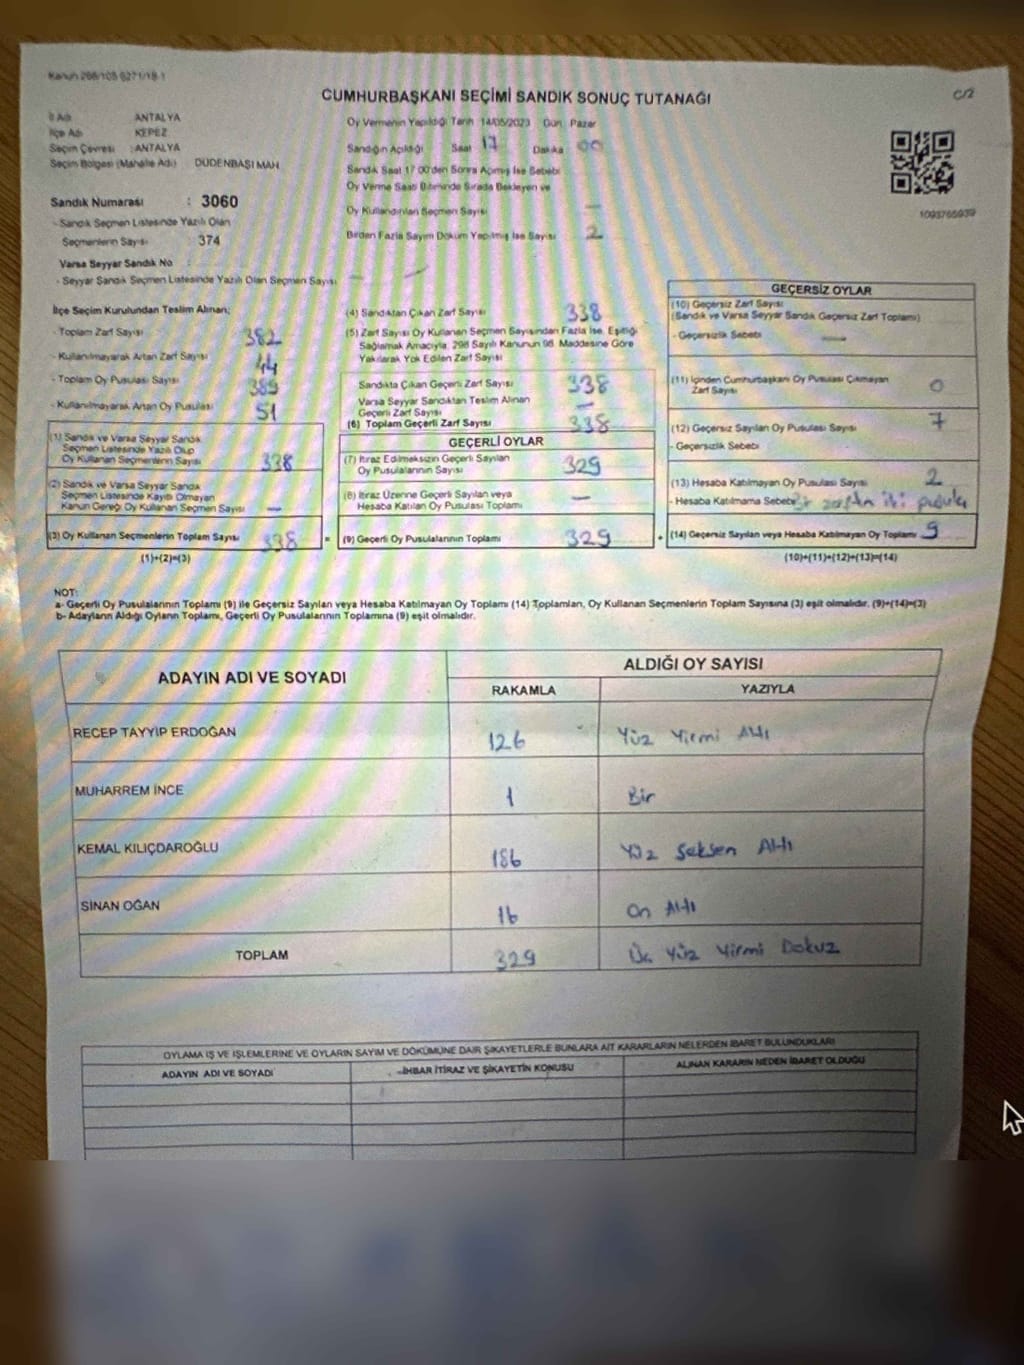 Kanun 298/105 6271/18-1
C/2
CUMHURBAŞKANI SEÇİMİ SANDIK SONUÇ TUTANAĞI
İl Adı ANTALYA
İlçe Adı KEPEZ
Seçim Çevresi : ANTALYA
Seçim Bölgesi (Mahalle Adı) : DÜDENBAŞI MAH.
Sandık Numarası : 3060
- Sandık Seçmen Listesinde Yazılı Olan
Seçmenlerin Sayısı : 374
Varsa Seyyar Sandık No :
- Seyyar Sandık Seçmen Listesinde Yazılı Olan Seçmen Sayısı : —
Oy Vermenin Yapıldığı Tarih 14/05/2023 Gün Pazar
Sandığın Açıldığı Saat 17 Dakika 00
Sandık Saat 17:00'den Sonra Açılmış İse Sebebi
Oy Verme Saati Bitiminde Sırada Bekleyen ve
Oy Kullandırılan Seçmen Sayısı —
Birden Fazla Sayım Döküm Yapılmış İse Sayısı 2
1093765939
İlçe Seçim Kurulundan Teslim Alınan;
- Toplam Zarf Sayısı 382
- Kullanılmayarak Artan Zarf Sayısı 44
- Toplam Oy Pusulası Sayısı 389
- Kullanılmayarak Artan Oy Pusulası 51
(1) Sandık ve Varsa Seyyar Sandık
Seçmen Listesinde Yazılı Olup
Oy Kullanan Seçmenlerin Sayısı 338
(2) Sandık ve Varsa Seyyar Sandık
Seçmen Listesinde Kayıtlı Olmayan
Kanun Gereği Oy Kullanan Seçmen Sayısı —
(3) Oy Kullanan Seçmenlerin Toplam Sayısı 338
(1)+(2)=(3)
(4) Sandıktan Çıkan Zarf Sayısı 338
(5) Zarf Sayısı Oy Kullanan Seçmen Sayısından Fazla İse, Eşitliği
Sağlamak Amacıyla, 298 Sayılı Kanunun 98. Maddesine Göre
Yakılarak Yok Edilen Zarf Sayısı
Sandıkta Çıkan Geçerli Zarf Sayısı 338
Varsa Seyyar Sandıktan Teslim Alınan
Geçerli Zarf Sayısı —
(6) Toplam Geçerli Zarf Sayısı 338
GEÇERLİ OYLAR
(7) İtiraz Edilmeksizin Geçerli Sayılan
Oy Pusulalarının Sayısı 329
(8) İtiraz Üzerine Geçerli Sayılan veya
Hesaba Katılan Oy Pusulası Toplamı —
= (9) Geçerli Oy Pusulalarının Toplamı 329
GEÇERSİZ OYLAR
(10) Geçersiz Zarf Sayısı
(Sandık ve Varsa Seyyar Sandık Geçersiz Zarf Toplamı)
- Geçersizlik Sebebi —
(11) İçinden Cumhurbaşkanı Oy Pusulası Çıkmayan
Zarf Sayısı 0
(12) Geçersiz Sayılan Oy Pusulası Sayısı 7
- Geçersizlik Sebebi
(13) Hesaba Katılmayan Oy Pusulası Sayısı 2
- Hesaba Katılmama Sebebi Bir zarftan iki pusula
+ (14) Geçersiz Sayılan veya Hesaba Katılmayan Oy Toplamı 9
(10)+(11)+(12)+(13)=(14)
NOT:
a- Geçerli Oy Pusulalarının Toplamı (9) ile Geçersiz Sayılan veya Hesaba Katılmayan Oy Toplamı (14) Toplamları, Oy Kullanan Seçmenlerin Toplam Sayısına (3) eşit olmalıdır. (9)+(14)=(3)
b- Adayların Aldığı Oyların Toplamı, Geçerli Oy Pusulalarının Toplamına (9) eşit olmalıdır.
ADAYIN ADI VE SOYADI
ALDIĞI OY SAYISI
RAKAMLA YAZIYLA
RECEP TAYYİP ERDOĞAN 126 Yüz Yirmi Altı
MUHARREM İNCE 1 Bir
KEMAL KILIÇDAROĞLU 186 Yüz Seksen Altı
SİNAN OĞAN 16 On Altı
TOPLAM 329 Üç Yüz Yirmi Dokuz
OYLAMA İŞ VE İŞLEMLERİNE VE OYLARIN SAYIM VE DÖKÜMÜNE DAİR ŞİKAYETLERLE BUNLARA AİT KARARLARIN NELERDEN İBARET BULUNDUKLARI
ADAYIN ADI VE SOYADI İHBAR İTİRAZ VE ŞİKAYETİN KONUSU ALINAN KARARIN NEDEN İBARET OLDUĞU